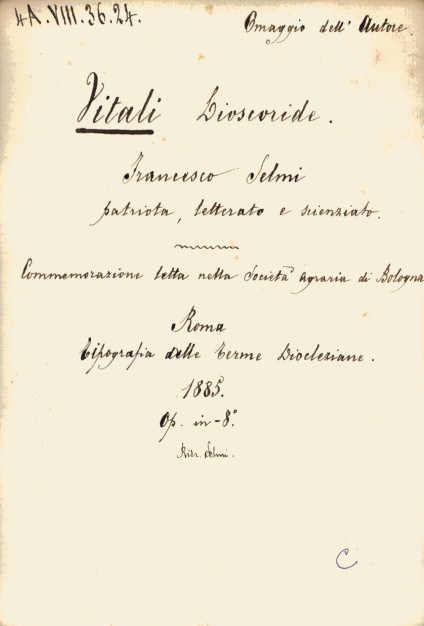 4A.VIII.36.24.
Omaggio dell' Autore.
Vitali Dioscoride.
Francesco Selmi
patriota, letterato e scienziato.
Commemorazione letta nella Società agraria di Bologna
Roma
Tipografia delle Terme Diocleziane.
1885.
Op. in-8°.
Ritr. Selmi.
C